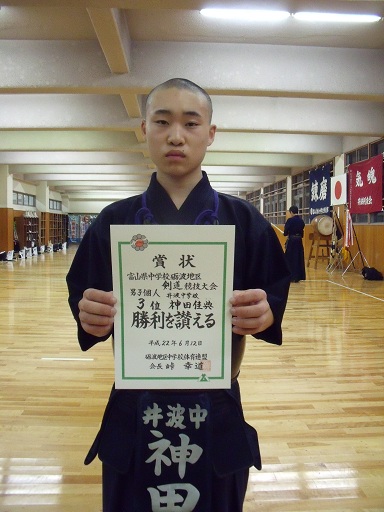 賞状
富山県中学校砺波地区
剣道競技大会
男子個人 井波中学校
3位 神田佳典
勝利を讃える
平成22年6月12日
砺波地区中学校体育連盟
会長 峠 幸道
井波中
神田
錬磨
気魂